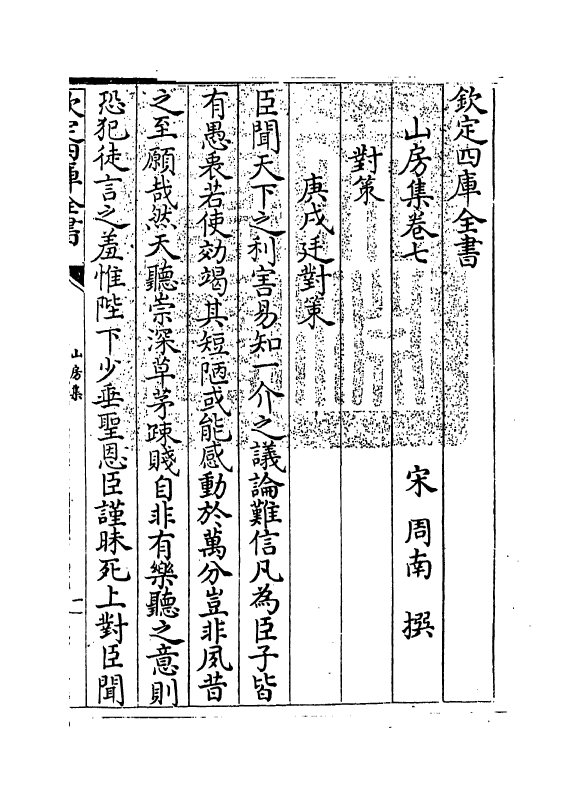 欽定四庫全書
山房集卷七
宋 周南 撰
對策
庚戌廷對策
臣聞天下之利害易知一介之議論難信凡為臣子皆
有愚衷若使効竭其短陋或能感動於萬分豈非夙昔
之至願哉然天聽崇深草茅疎賤自非有樂聽之意則
恐犯徒言之羞惟陛下少垂聖恩臣謹昧死上對臣聞
欽定四庫全書
山房集